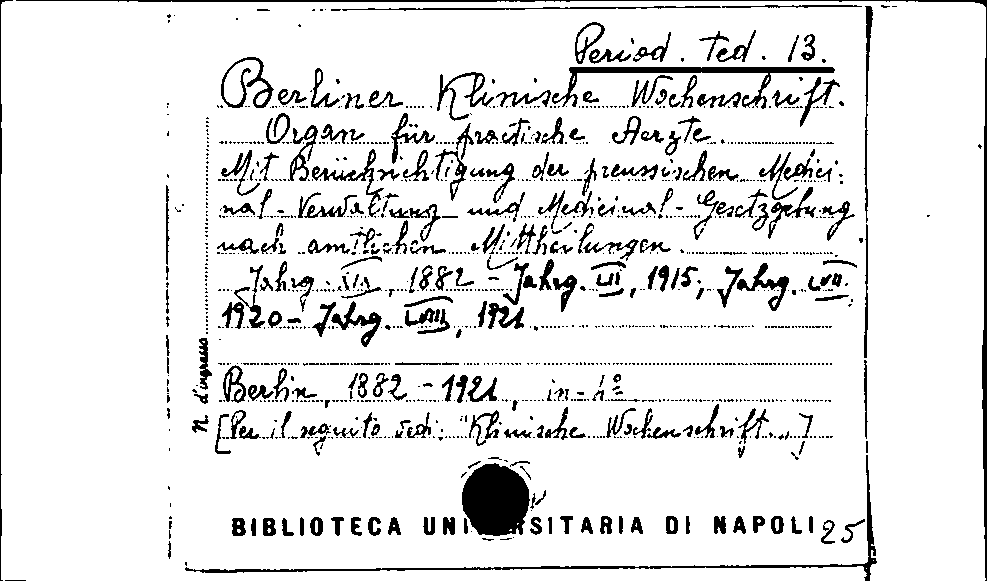 Period. ted. 13.
Berliner Klinische Wochenschrift.
Organ für practische Aerzte.
Mit Berücksichtigung der preussischen Medici-
nal-Verwaltung und Medicinal-Gesetzgebung
nach amtlichen Mittheilungen.
Jahrg. , 1882 - Jahrg. LII, 1915; Jahrg. LVII.
1920 - Jahrg. LVIII, 1921.
Berlin, 1882 - 1921, in-4º
[Per il seguito vedi: "Klinische Wochenschrift..."]
N. d'ingresso
BIBLIOTECA UNIVERSITARIA DI NAPOLI 25